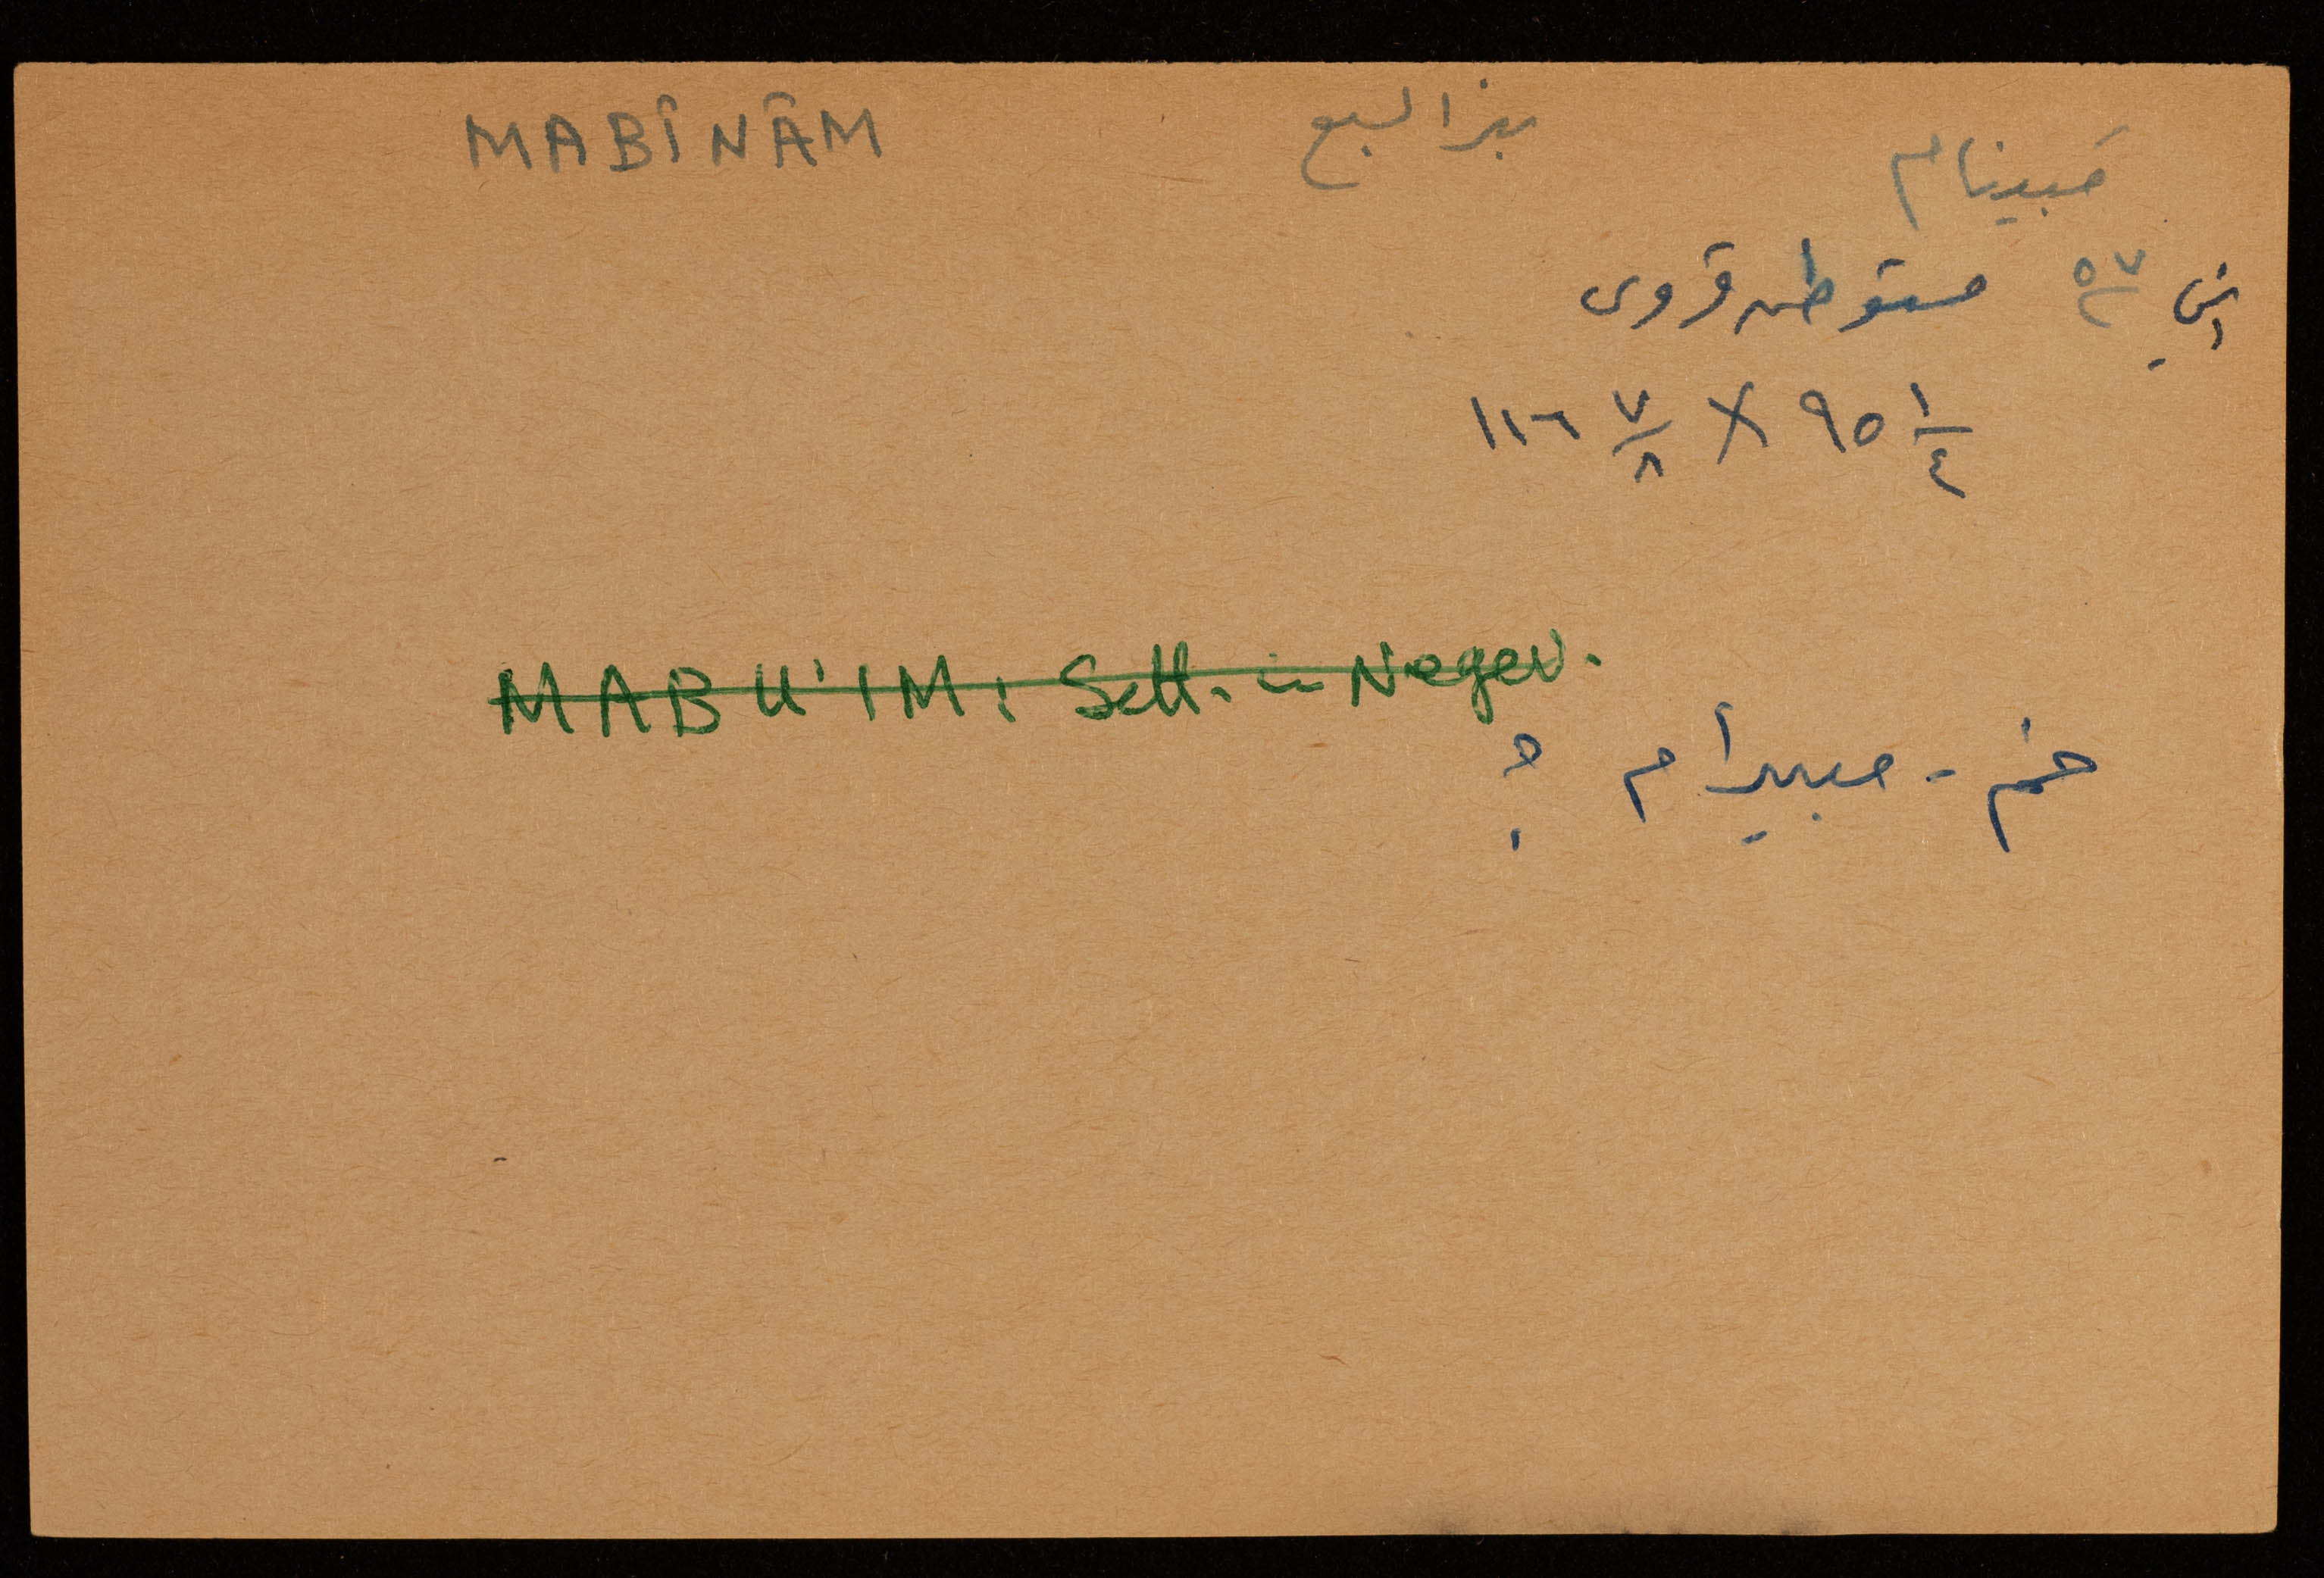 MABÎNÂM بئر السبع مَبينام
٥٧ مستوطن قروى
١١٦ ٧/٨ X ٩٥ ١/٤
MABU'IM: Sett. in Negev.
خم - مبيرأم ؟